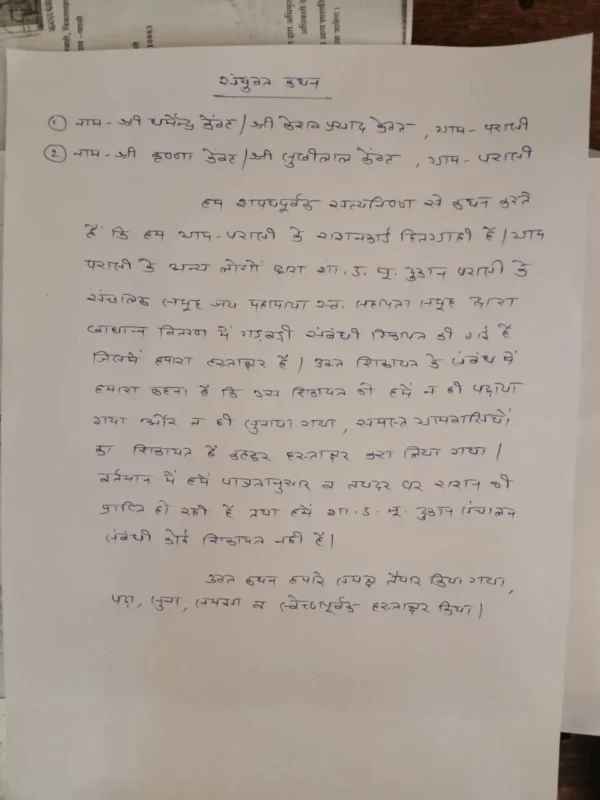 संयुक्त कथन
① नाम - श्री धर्मेन्द्र केंवट / श्री केशव प्रसाद केंवट , ग्राम - परासी
② नाम - श्री कृष्णा केंवट / श्री सुखीलाल केंवट , ग्राम - परासी
हम शपथपूर्वक सत्यनिष्ठा से कथन करते
हैं कि हम ग्राम - परासी के राशनकार्ड हितग्राही हैं । ग्राम
परासी के अन्य लोगों द्वारा शा. उ. मू. दुकान परासी के
संचालक समूह जय महामाया स्व. सहायता समूह द्वारा
खाद्यान्न वितरण में गड़बड़ी संबंधी शिकायत की गई है
जिसमें हमारा हस्ताक्षर है । उक्त शिकायत के संबंध में
हमारा कहना है कि उस शिकायत को हमें न ही पढ़ाया
गया और न ही सुनाया गया , समस्त ग्रामवासियों
का शिकायत है कहकर हस्ताक्षर करा लिया गया ।
वर्तमान में हमें पात्रतानुसार व तयदर पर राशन की
प्राप्ति हो रही है तथा हमें शा. उ. मू. दुकान संचालन
संबंधी कोई शिकायत नहीं है ।
उक्त कथन हमारे समक्ष तैयार किया गया ,
पढ़ा , सुना , समझा व स्वेच्छापूर्वक हस्ताक्षर किया ।